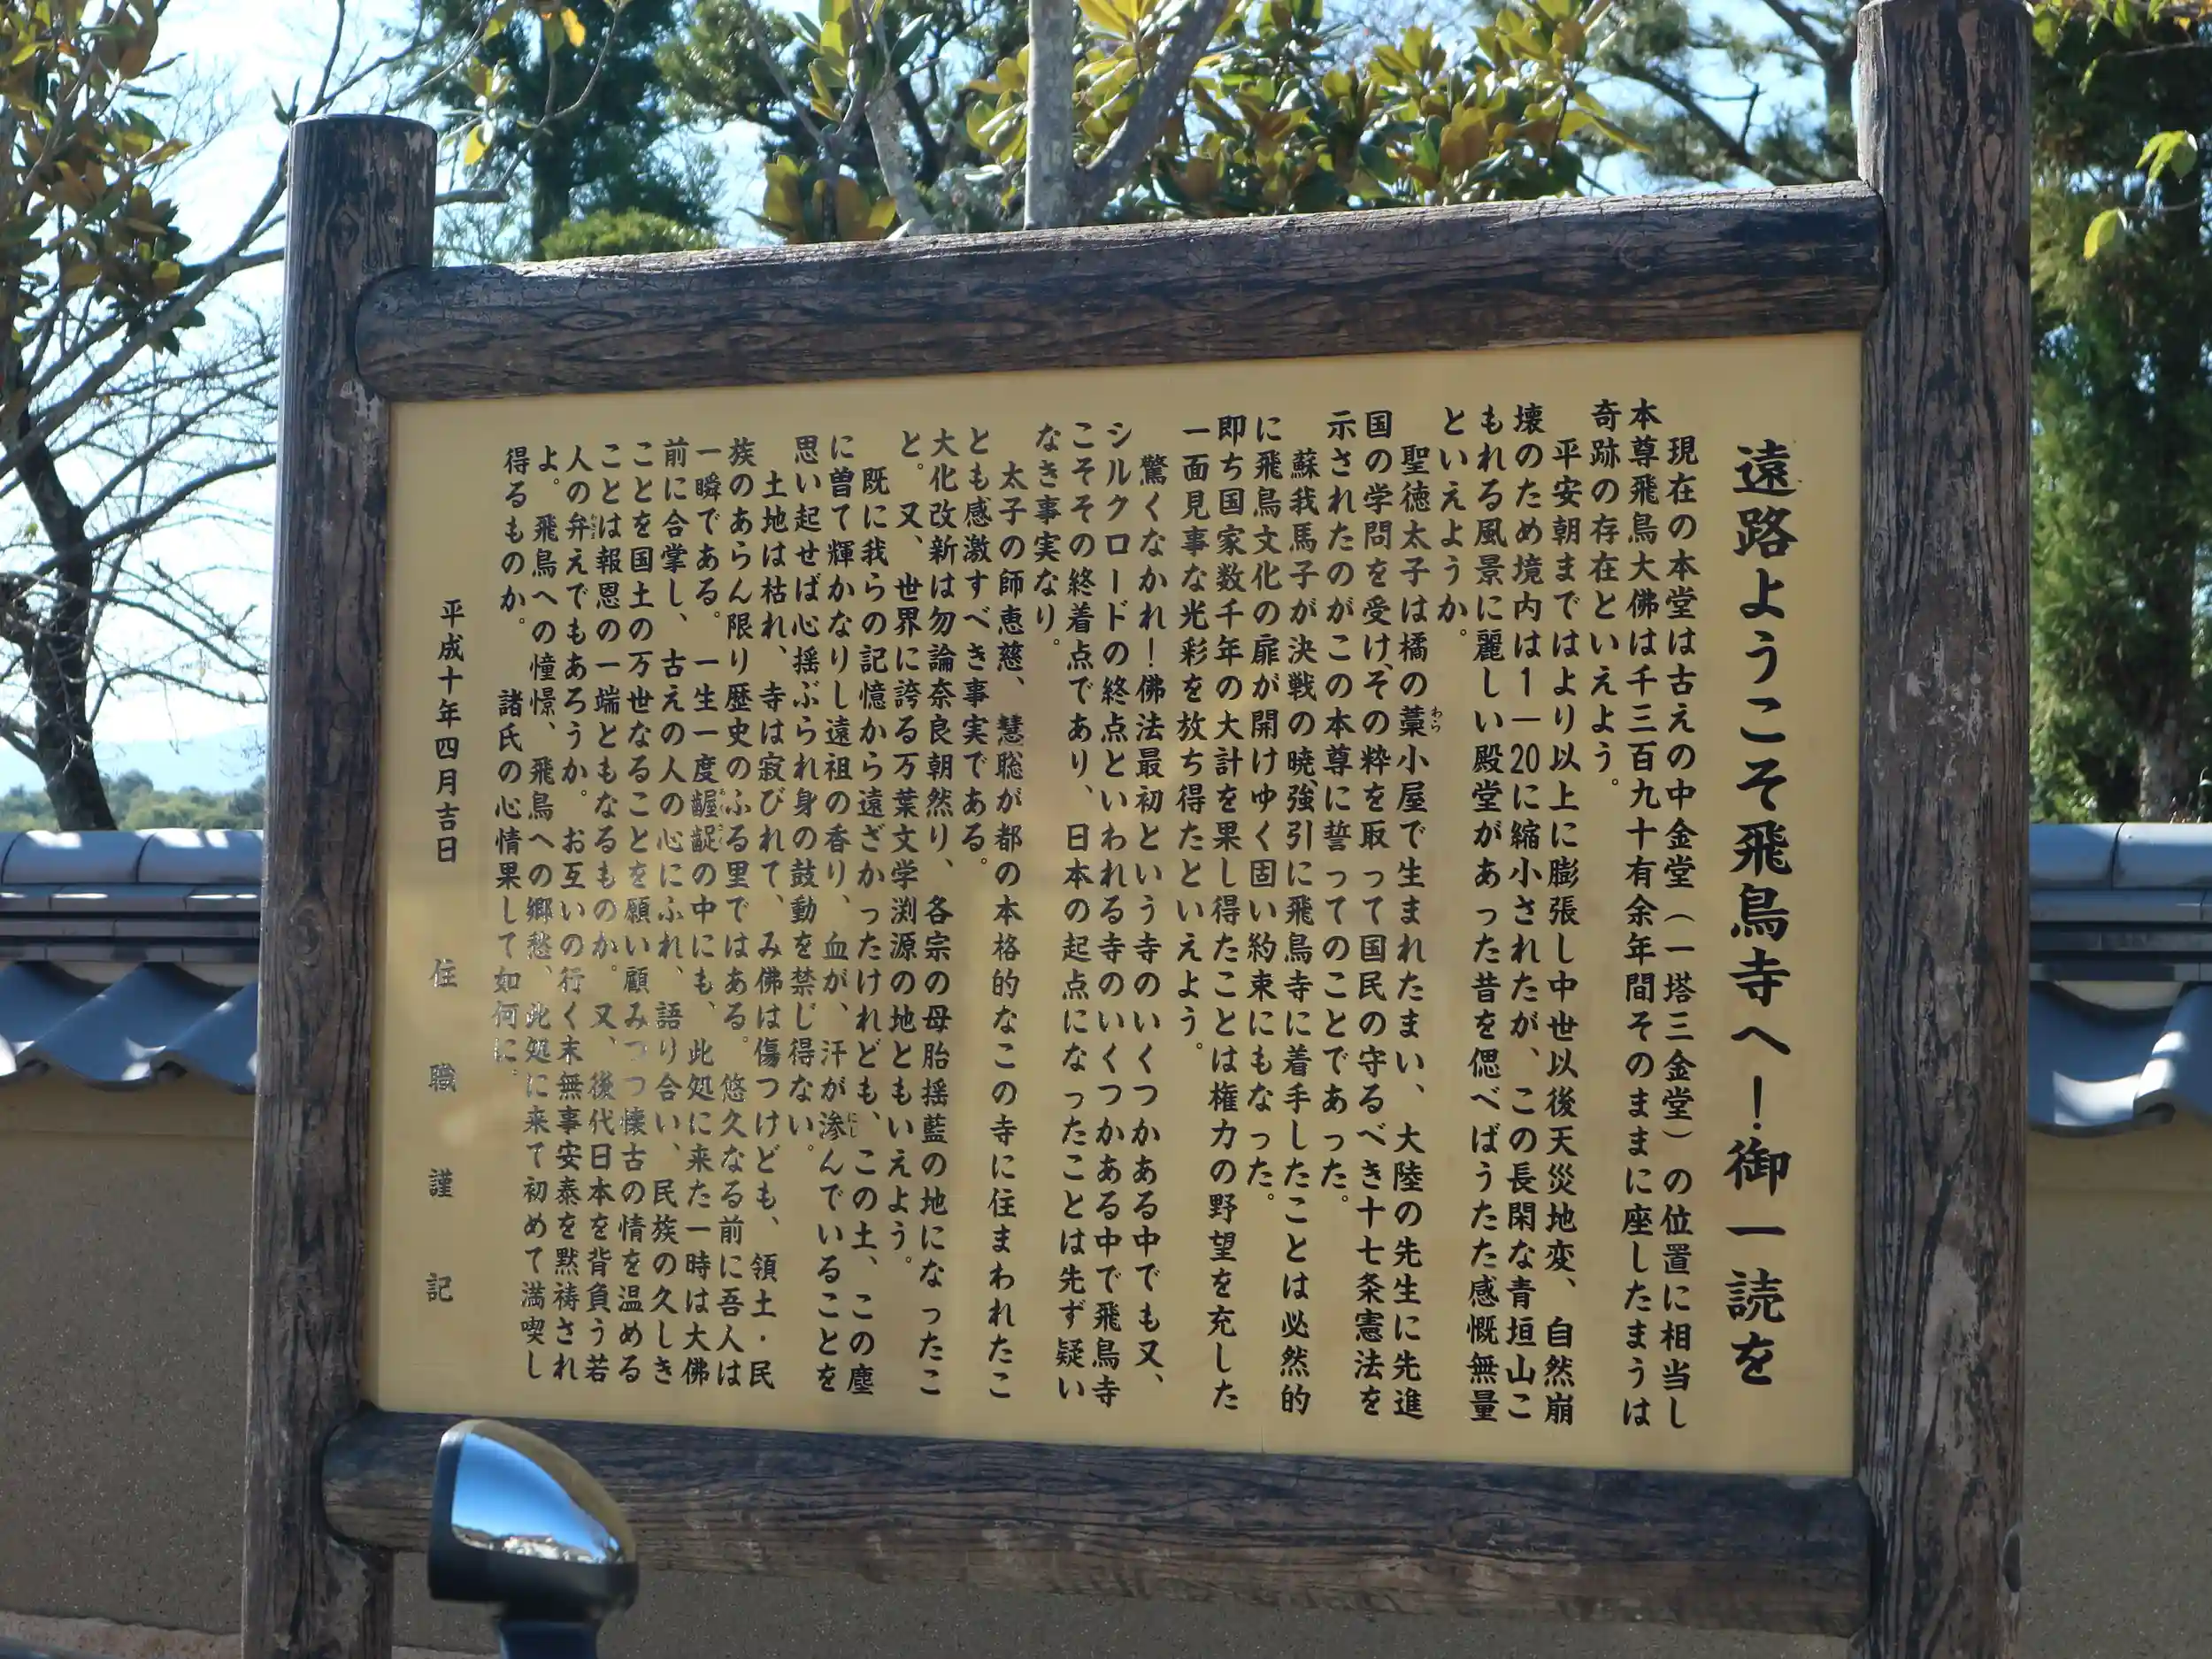 遠路ようこそ飛鳥寺へ！御一読を
現在の本堂は古えの中金堂（一塔三金堂）の位置に相当し
本尊飛鳥大佛は千三百九十有余年間そのままに座したまうは
奇跡の存在といえよう。
平安朝まではより以上に膨張し中世以後天災地変、自然崩
壊のため境内は1―20に縮小されたが、この長閑な青垣山こ
もれる風景に麗しい殿堂があった昔を偲べばうたた感慨無量
といえようか。
聖徳太子は橘の藁小屋で生まれたまい、大陸の先生に先進
わら
国の学問を受け、その粋を取って国民の守るべき十七条憲法を
示されたのがこの本尊に誓ってのことであった。
蘇我馬子が決戦の暁、強引に飛鳥寺に着手したことは必然的
に飛鳥文化の扉が開けゆく固い約束にもなった。
即ち国家数千年の大計を果し得たことは権力の野望を充した
一面見事な光彩を放ち得たといえよう。
驚くなかれ！佛法最初という寺のいくつかある中でも又、
シルクロードの終点といわれる寺のいくつかある中で飛鳥寺
こそその終着点であり、日本の起点になったことは先ず疑い
なき事実なり。
太子の師恵慈、慧聡が都の本格的なこの寺に住まわれたこ
とも感激すべき事実である。
大化改新は勿論奈良朝然り、各宗の母胎揺藍の地になったこ
と。又、世界に誇る万葉文学渕源の地ともいえよう。
既に我らの記憶から遠ざかったけれども、この土、この塵
に曽て輝かなりし遠祖の香り、血が、汗が滲んでいることを
思い起せば心揺ぶられ身の鼓動を禁じ得ない。
土地は枯れ、寺は寂びれて、み佛は傷つけども、領土・民
族のあらん限り歴史のふる里ではある。悠久なる前に吾人は
一瞬である。一生一度齷齪の中にも、此処に来た一時は大佛
前に合掌し、古えの人の心にふれ、語り合い、民族の久しき
ことを国土の万世なることを願い顧みつつ懐古の情を温める
ことは報恩の一端ともなるものか。又、後代日本を背負う若
人の弁えでもあろうか。お互いの行く末無事安泰を黙祷され
よ。飛鳥への憧憬、飛鳥への郷愁、此処に来て初めて満喫し
得るものか。諸氏の心情果して如何に。
平成十年四月吉日 住職謹記